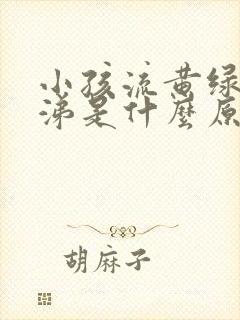 小孩流黄绿
涕是什麼原
胡麻子